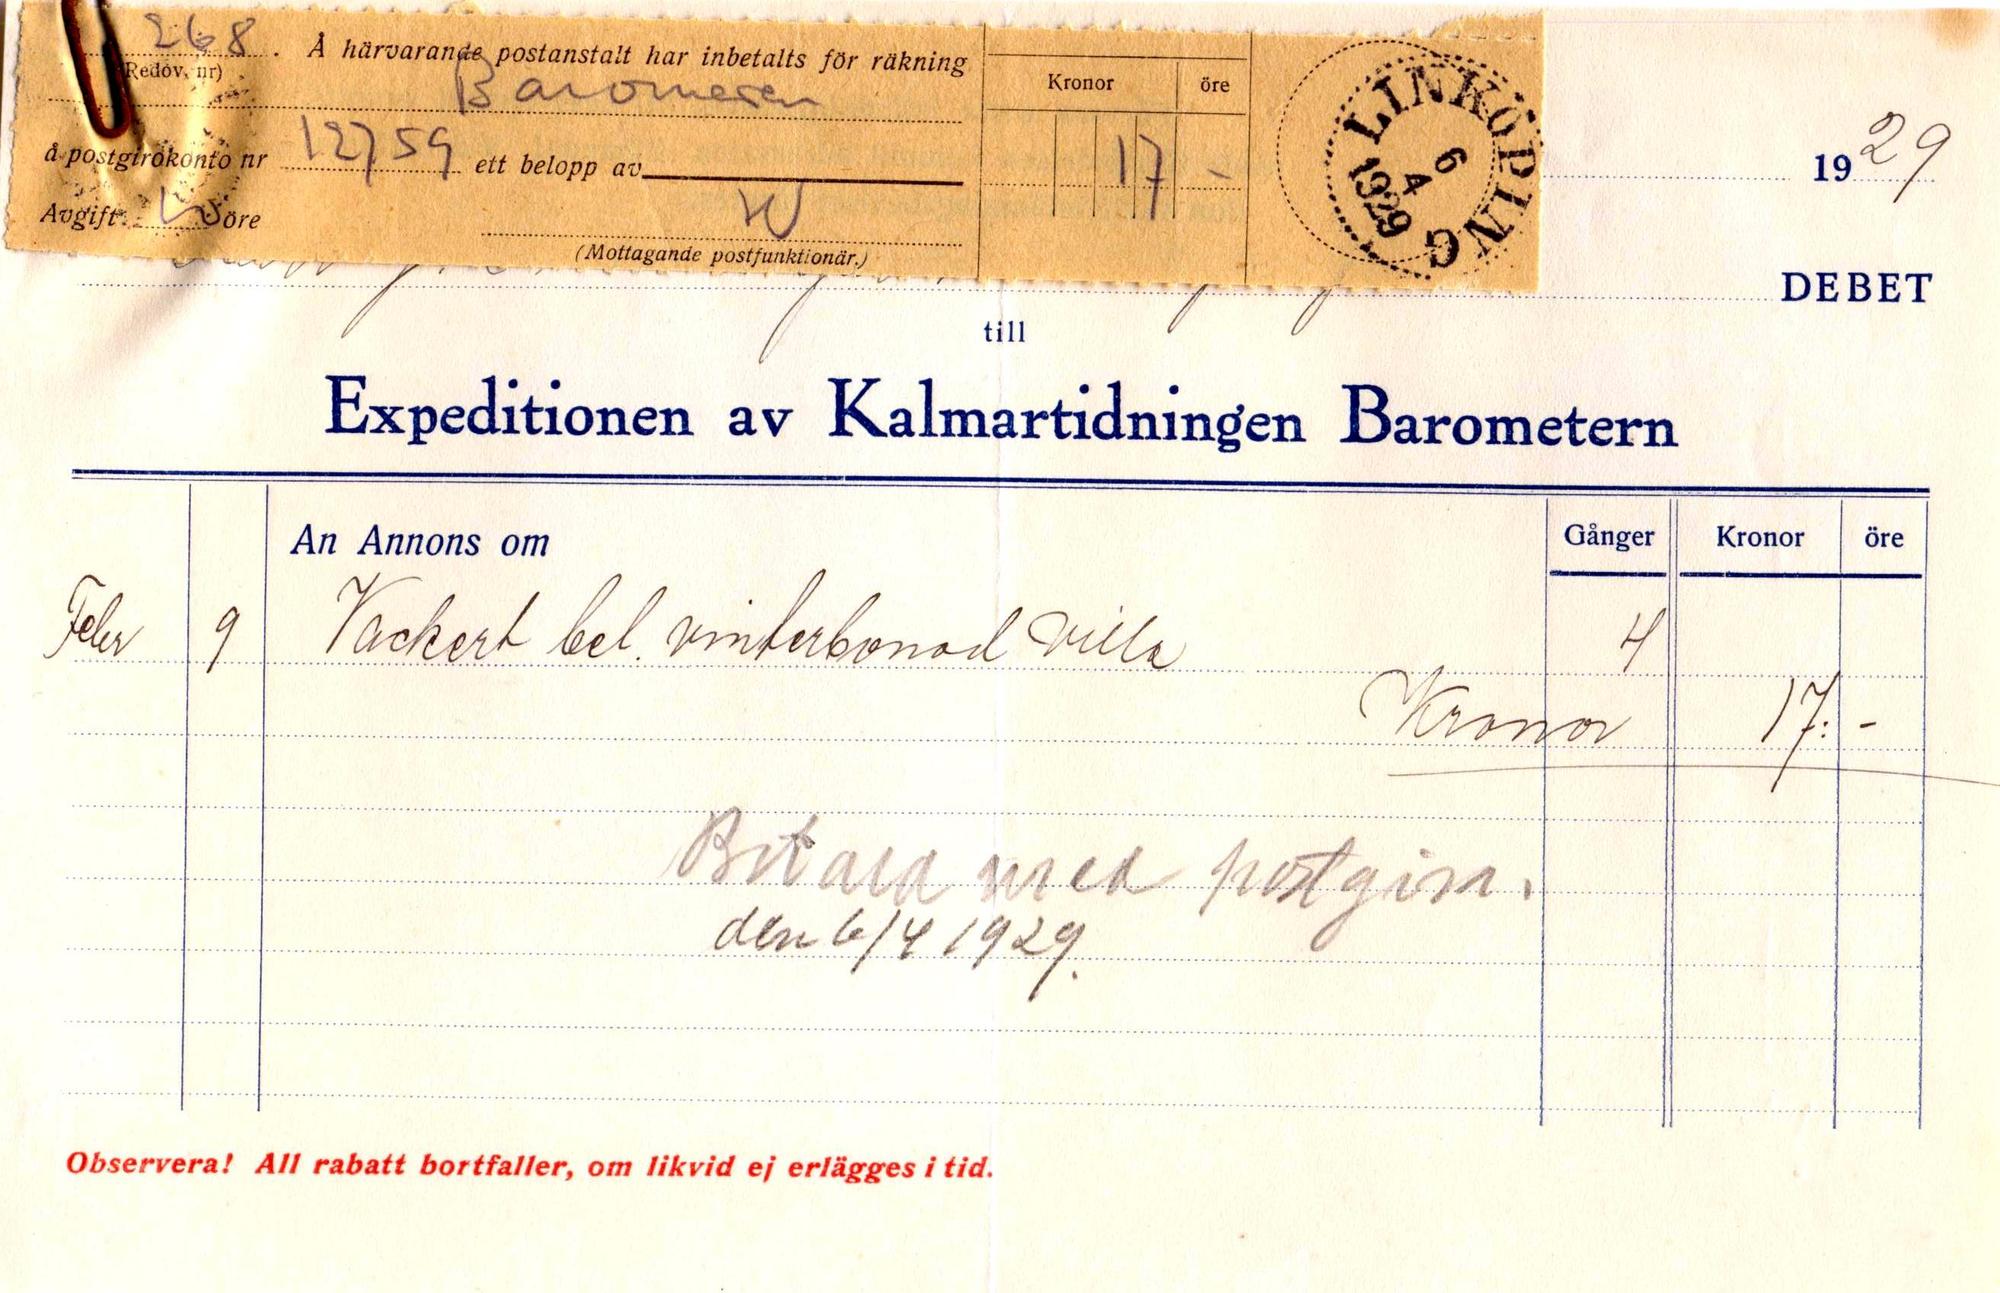 268.
(Redov. nr)
Å härvarande postanstalt har inbetalts för räkning
Barometern
å postgirokonto nr 12759 ett belopp av
Avgift öre
(Mottagande postfunktionär.)
Kronor öre
17 -
LINKÖPING
6
4
1929
1929
DEBET
till
Expeditionen av Kalmartidningen Barometern
An Annons om Gånger Kronor öre
Febr 9 Vackert bel. vinterbonad villa 4
Kronor 17:-
Betald med postgiro.
den 6/4 1929.
Observera! All rabatt bortfaller, om likvid ej erlägges i tid.